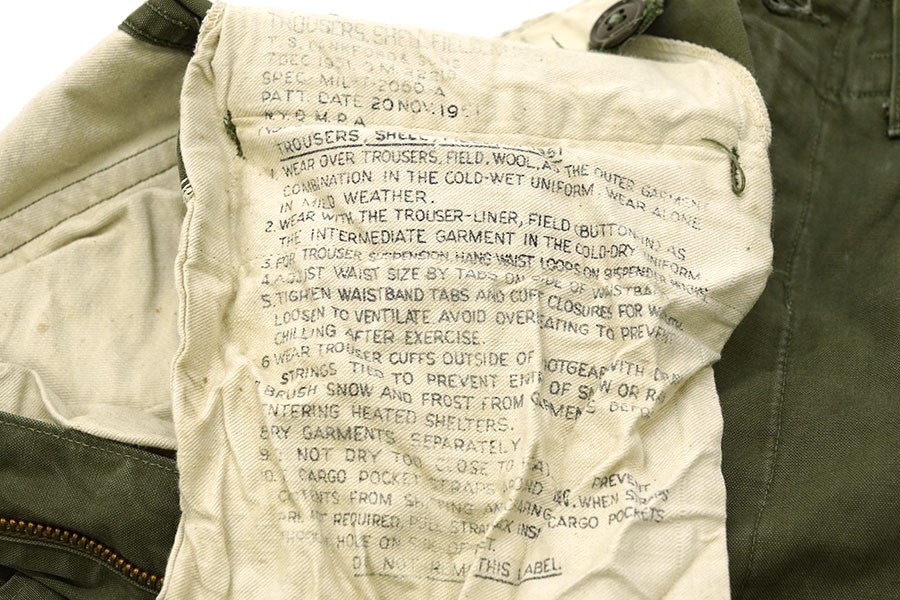 TROUSERS, SHELL, FIELD,
7 DEC 1951
SPEC. MIL-T-2060-A
PATT. DATE 20 NOV. 1951
N.Y.Q.M.P.A.
TROUSERS, SHELL, 1951
1. WEAR OVER TROUSERS, FIELD, WOOL, AS THE OUTER GARMENT
COMBINATION IN THE COLD-WET UNIFORM. WEAR ALONE
IN MILD WEATHER.
2. WEAR WITH THE TROUSER-LINER, FIELD (BUTTON IN) AS
THE INTERMEDIATE GARMENT IN THE COLD-DRY UNIFORM.
3. FOR TROUSER SUSPENSION HANG WAIST LOOPS ON SUSPENDER HOOKS.
4. ADJUST WAIST SIZE BY TABS ON SIDE OF WAISTBA
5. TIGHTEN WAISTBAND TABS AND CUFF CLOSURES FOR WARMTH.
LOOSEN TO VENTILATE AVOID OVERHEATING TO PREVENT
CHILLING AFTER EXERCISE.
6 WEAR TROUSER CUFFS OUTSIDE OF FOOTGEAR WITH DRAW
STRINGS TIED TO PREVENT ENT OF SNOW OR RA
7 BRUSH SNOW AND FROST FROM GARMENTS BEFOR
ENTERING HEATED SHELTERS.
8 DRY GARMENTS SEPARATELY
9. NOT DRY TOO CLOSE TO HEA
10. T CARGO POCKET STRAPS AROUND PREVENT
CONTENTS FROM SHIFTING AND WHEN STRAPS
ARE NOT REQUIRED, STRA INS CARGO POCKETS
THROUGH HOLE ON SIDE OF
DO NOT REM THIS LABEL